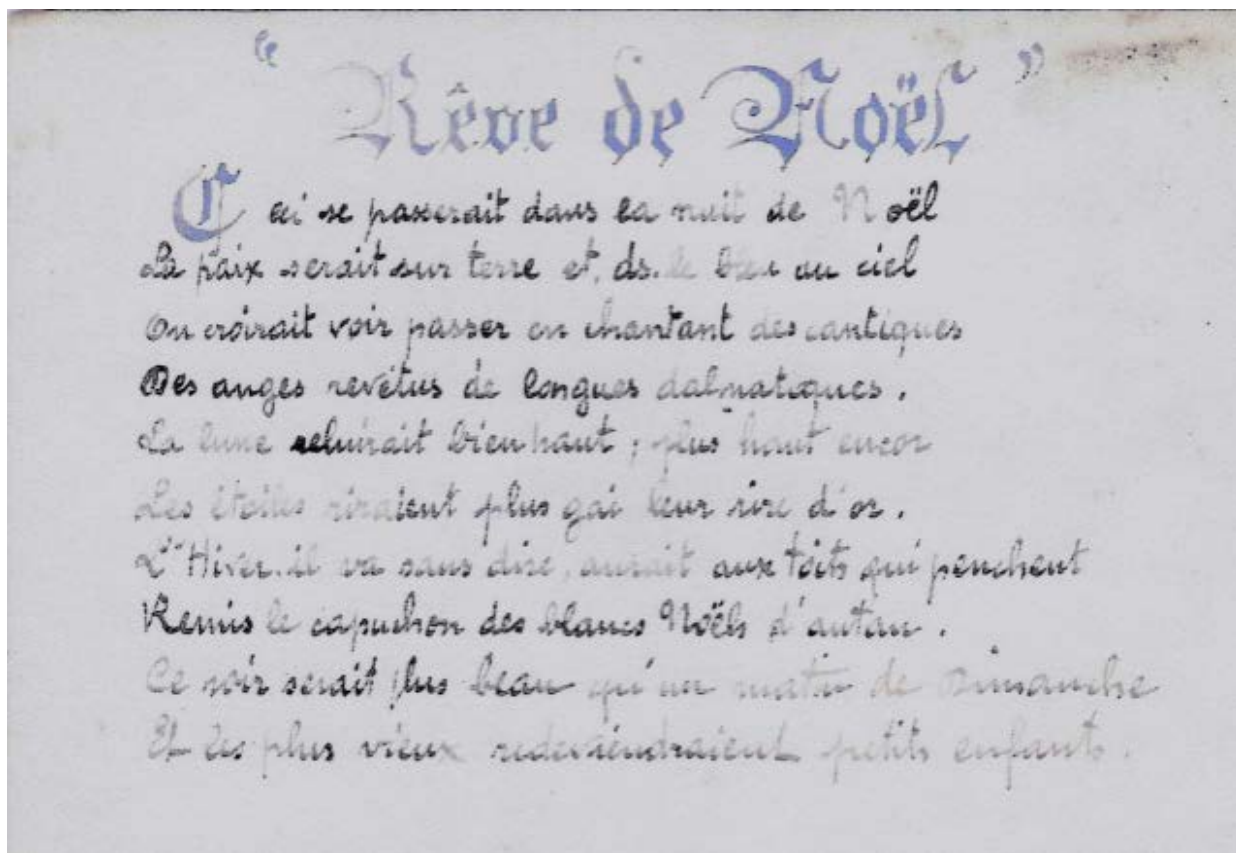 " Rêve de Noël "
Ceci se passerait dans la nuit de Noël
La paix serait sur terre et, ds. le bleu du ciel
On croirait voir passer en chantant des cantiques
Des anges revêtus de longues dalmatiques.
La lune reluirait bien haut ; plus haut encor
Les étoiles riraient plus gai leur rire d'or.
L'Hiver, il va sans dire, aurait aux toits qui penchent
Remis le capuchon des blancs Noëls d'autan.
Ce soir serait plus beau qu'un matin de Dimanche
Et les plus vieux redeviendraient petits enfants.